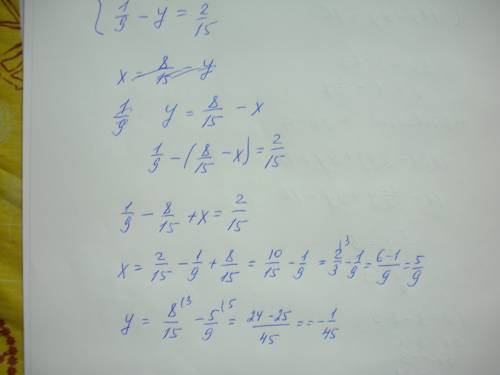 { 1/9 - y = 2/15
x = 8/15 - y
1/9 y = 8/15 - x
1/9 - (8/15 - x) = 2/15
1/9 - 8/15 + x = 2/15
x = 2/15 - 1/9 + 8/15 = 10/15 - 1/9 = 2/3 \3 - 1/9 = 6-1/9 = 5/9
y = 8/15 \3 - 5/9 \5 = 24-25/45 = = - 1/45